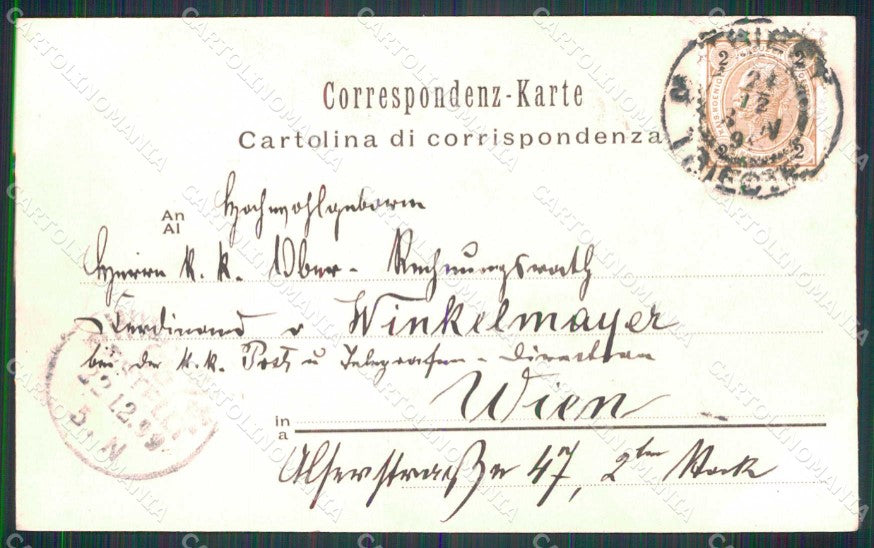 Correspondenz-Karte
Cartolina di corrispondenza
An
Al
Hochwohlgeboren
Herrn k. k. Ober-Rechnungsrath
Ferdinand v Winkelmayer
bei der k.k. Post u Telegrafen-Direction
in
a
Wien
Alserstraße 47, 2ten Stock
2
2
2
2
TRIEST
12
TRIESTE
22.12.99
5. N
CARTOLINOMANIA